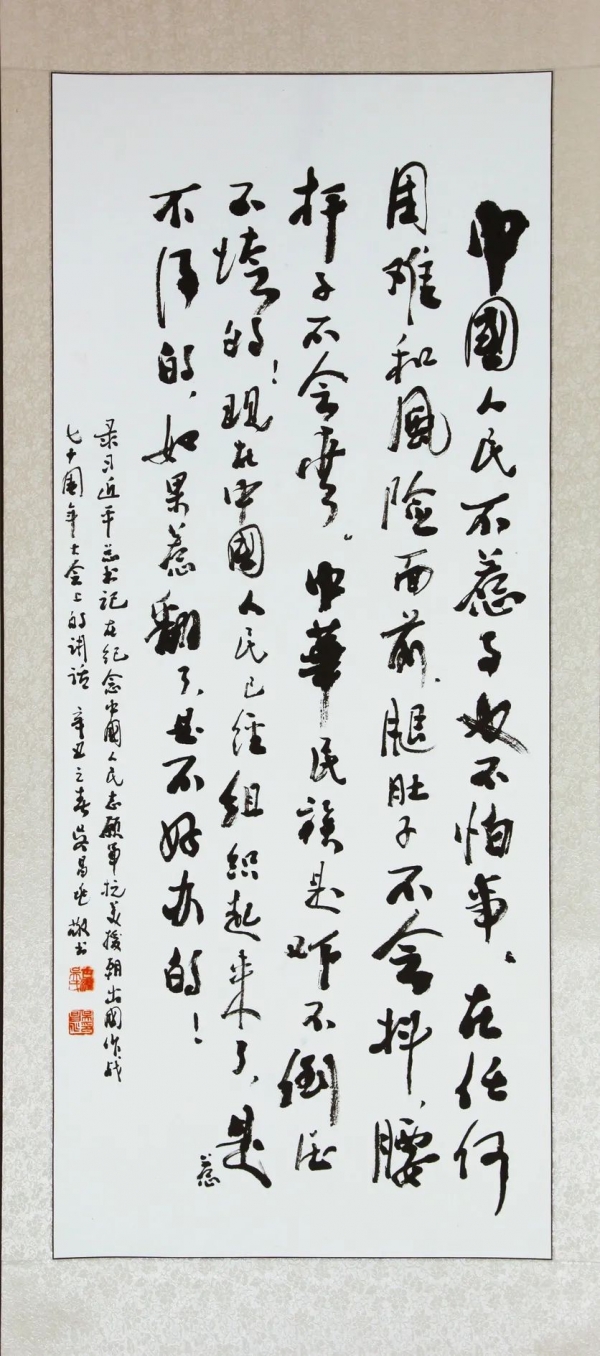 中國人民不惹事也不怕事、在任何
困难和風险面前、腿肚子不会抖、腰
杆子不会弯。中華民族是吓不倒压
不垮的！现在中國人民已经组织起来了、是
惹
不得的，如果惹翻了、是不好办的！
录习近平总书记在纪念中國人民志愿軍抗美援朝出國作战
七十周年大会上的讲话 辛丑之春 敬书